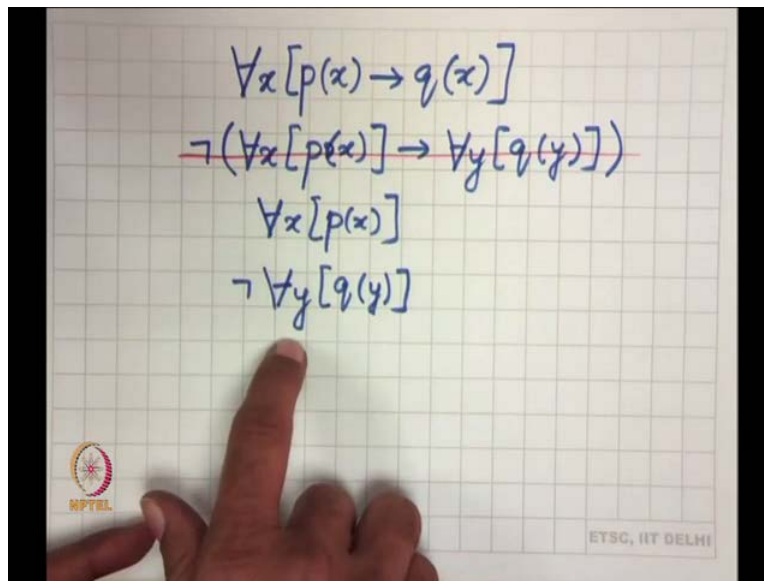 ∀x[p(x) → q(x)]
¬(∀x[p(x)] → ∀y[q(y)])
∀x[p(x)]
¬∀y[q(y)]
NPTEL
ETSC, IIT DELHI